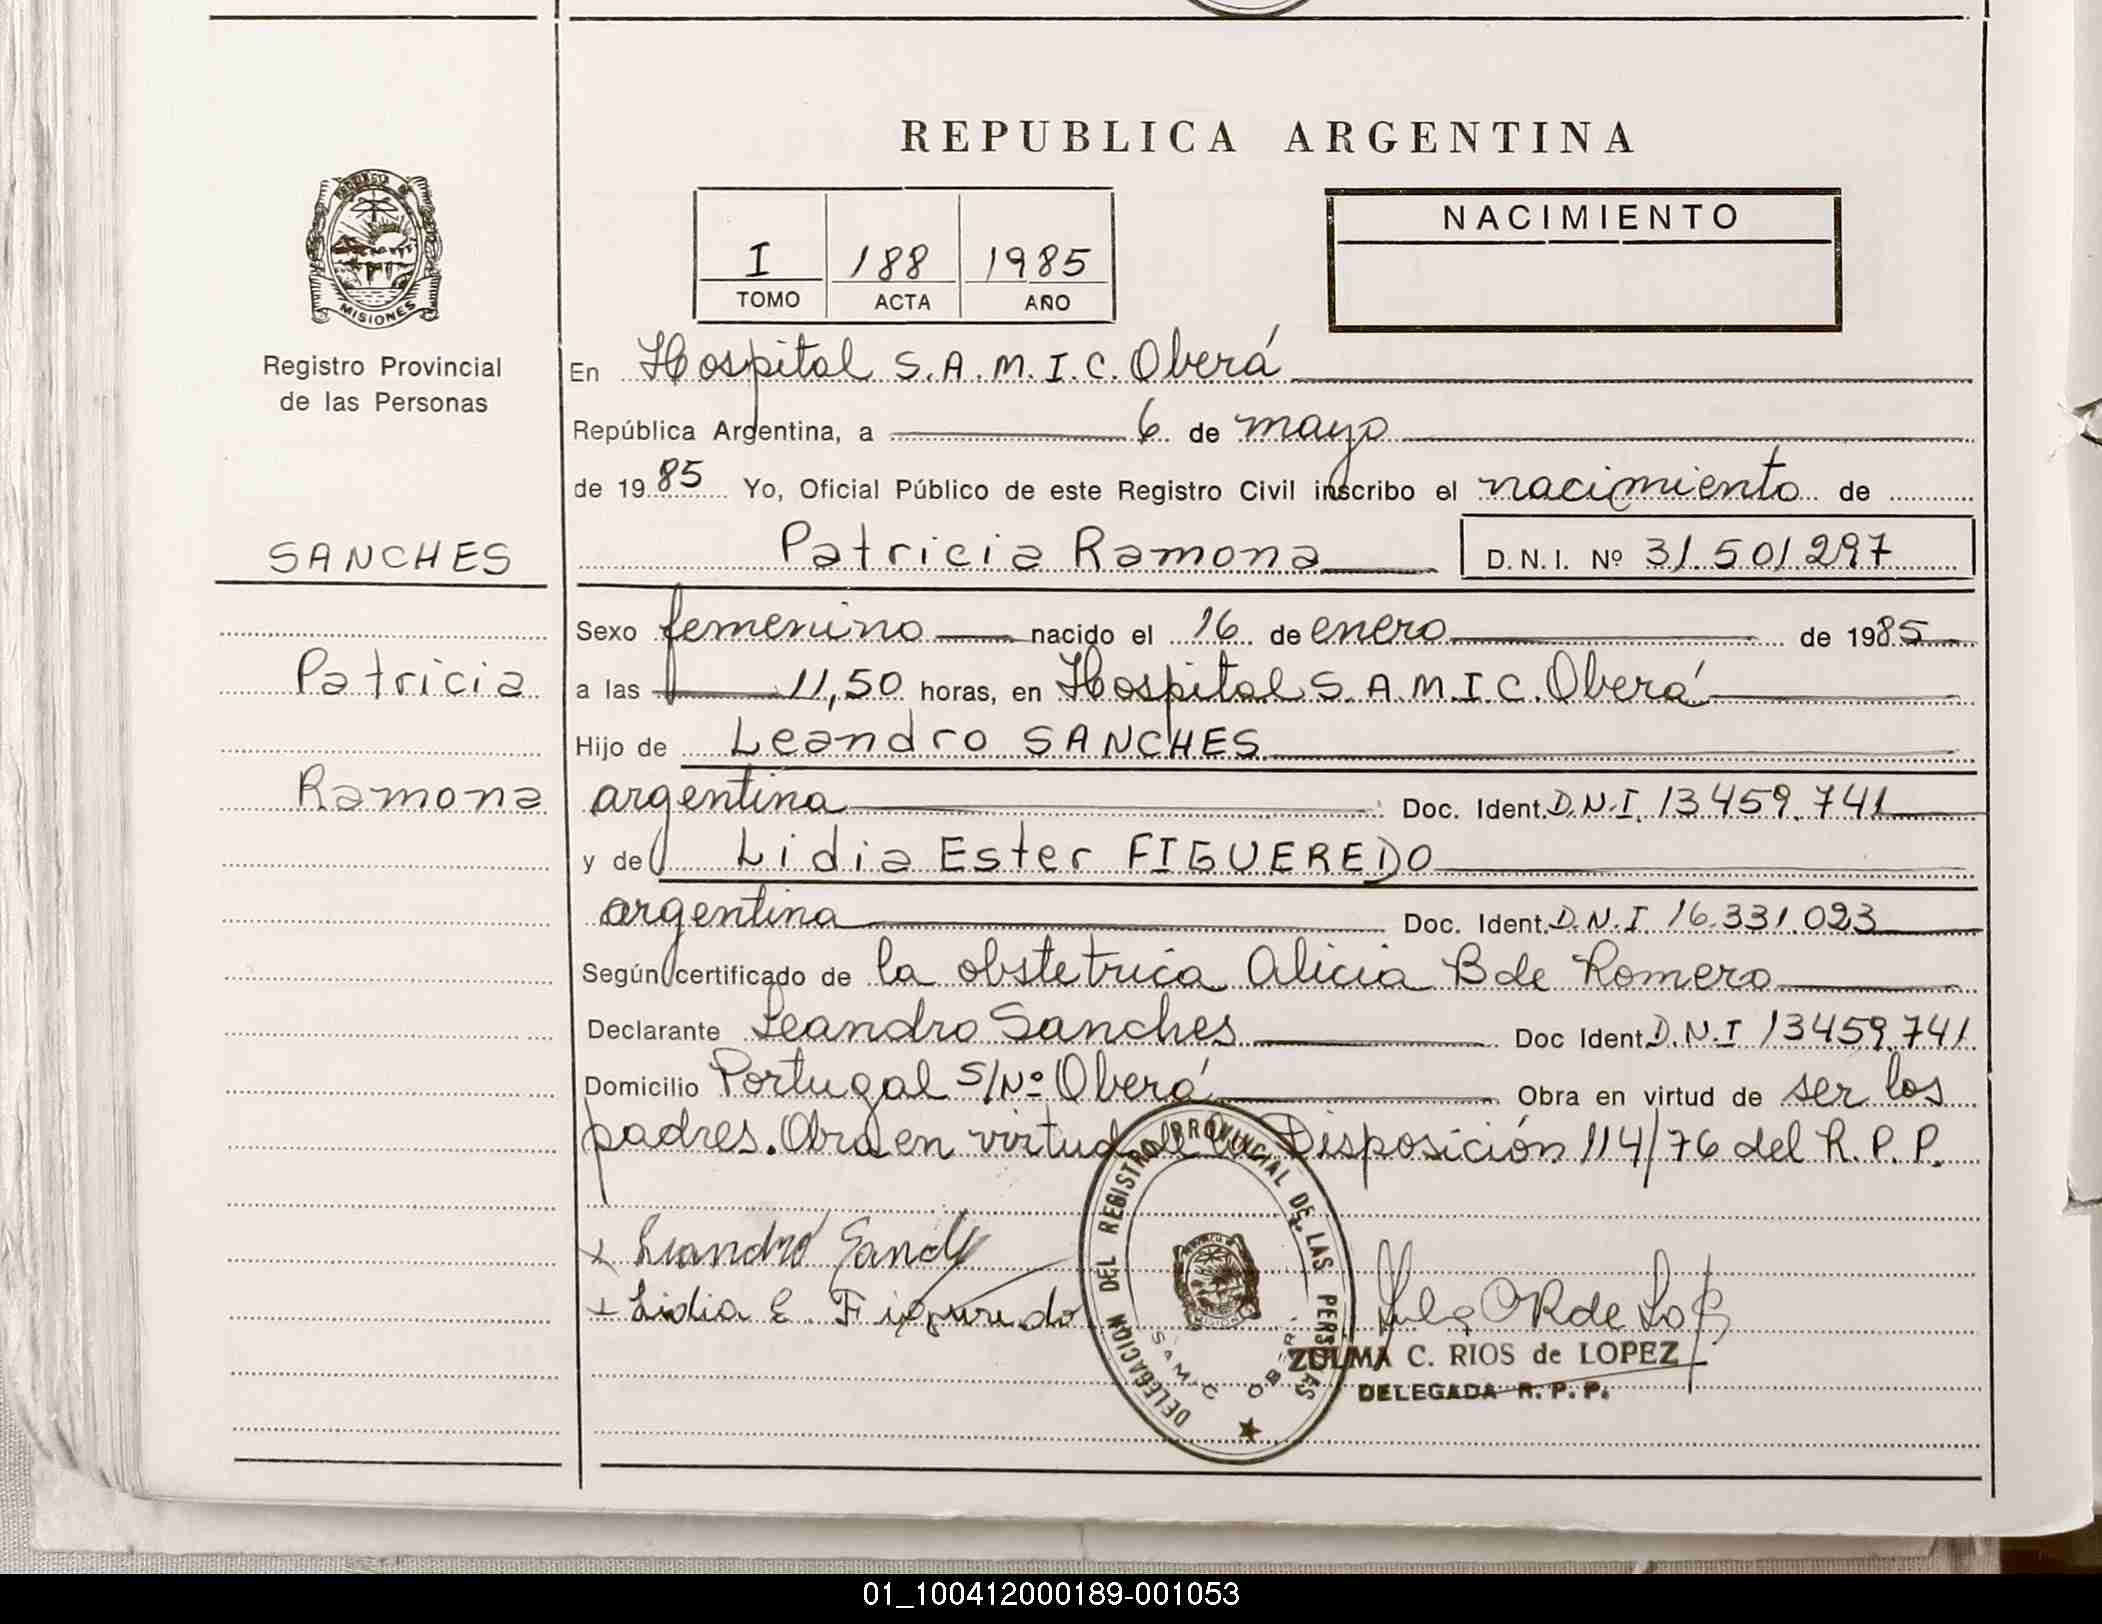 REPUBLICA ARGENTINA
NACIMIENTO
I 188 1985
TOMO ACTA AÑO
MISIONES
Registro Provincial
de las Personas
En Hospital S.A.M.I.C. Oberá
República Argentina, a 6 de mayo
de 1985 Yo, Oficial Público de este Registro Civil inscribo el nacimiento de
SANCHES
Patricia Ramona D.N.I. Nº 31.501297
Sexo femenino nacido el 16 de enero de 1985
Patricia
a las 11,50 horas, en Hospital S.A.M.I.C. Oberá
Hijo de Leandro SANCHES
Ramona
argentina Doc. Ident. D.N.I. 13459.741
y de Lidia Ester FIGUEREDO
argentina Doc. Ident. D.N.I 16.331.023
Según certificado de la obstetrica Alicia B de Romero
Declarante Leandro Sanches Doc Ident D.N.I 13459.741
Domicilio Portugal S/Nº Oberá Obra en virtud de ser los
padres. Obra en virtud de la Disposición 114/76 del R.P.P.
DELEGACION DEL REGISTRO PROVINCIAL DE LAS PERSONAS
Leandro
Lidia E. Figueredo
SAMIC OBERA
ZULMA C. RIOS de LOPEZ
DELEGADA R.P.P.
01_100412000189-001053